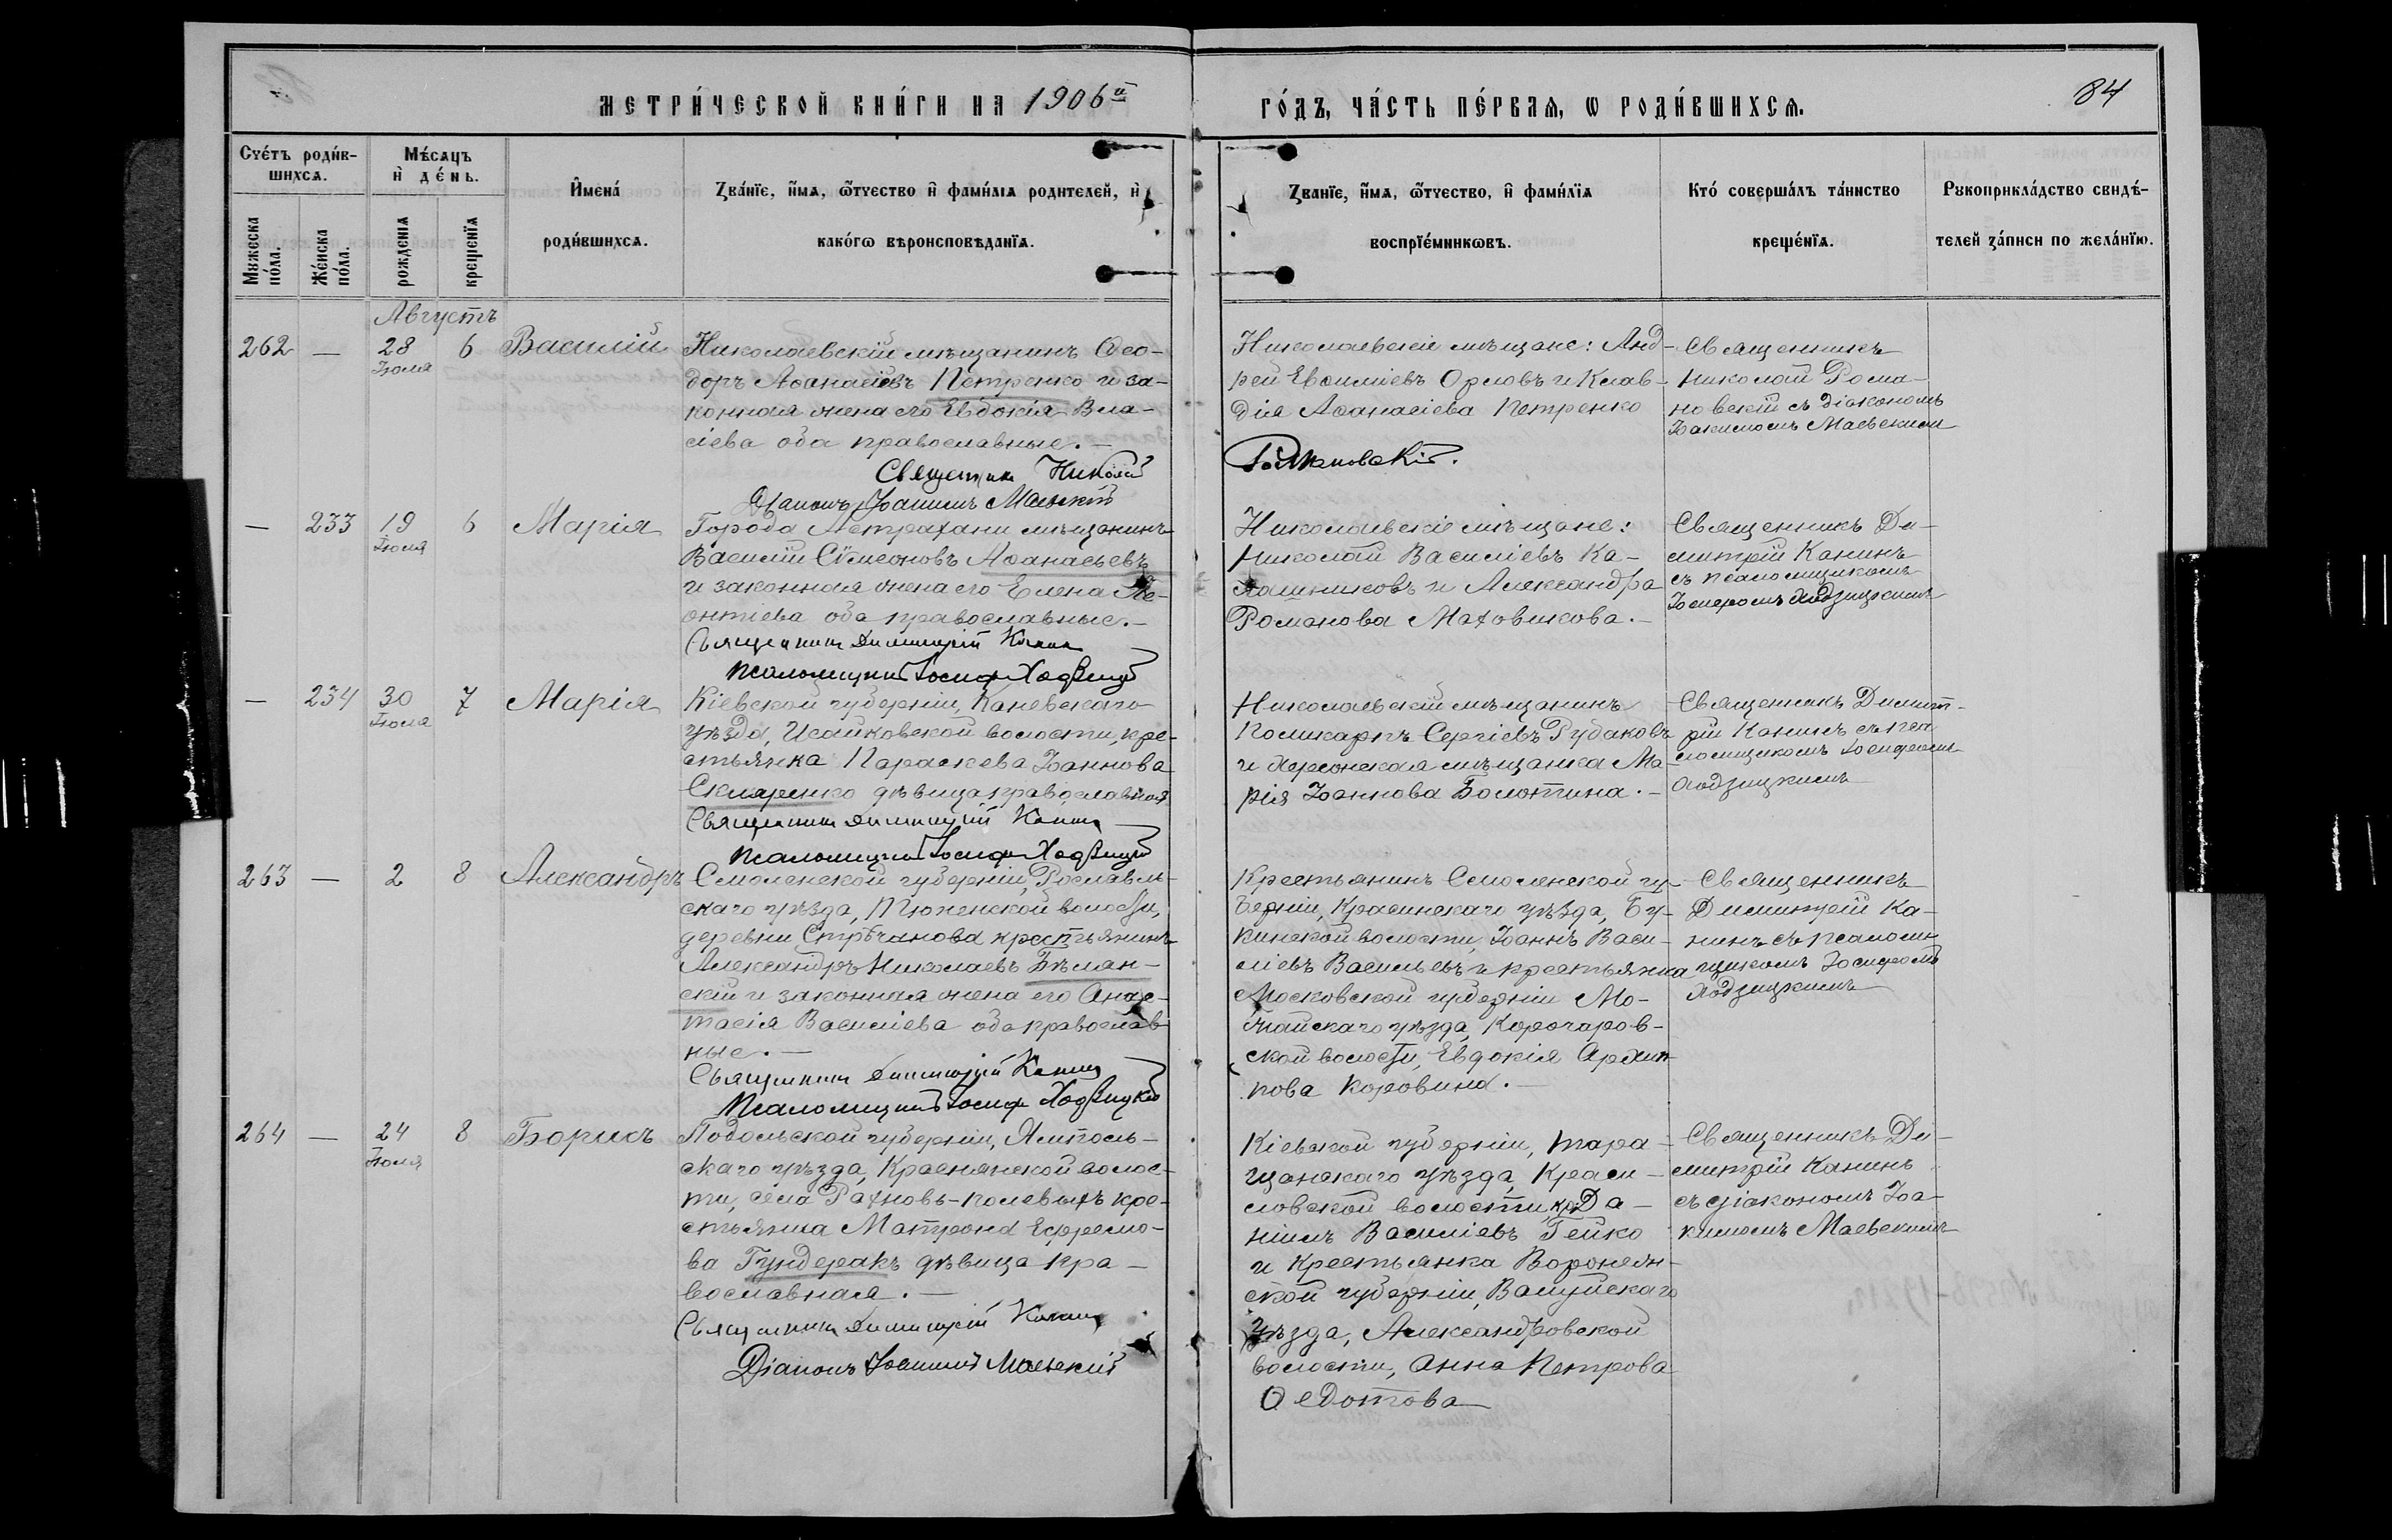 МЕТРИ́ЧЕСКОЙ КНИ́ГИ НА 1906й
ГО́ДЪ, ЧА́СТЬ ПЕ́РВАѦ, Ѡ РОДИ́ВШИХСѦ.
84
Сче́тъ роди́в-
шихсѧ.
Мꙋжеска
по́ла.
Же́нска
по́ла.
Мѣ́сѧцъ
и҆ де́нь.
рожденїѧ
крещенїѧ
И҆мена́
роди́вшихсѧ.
Зва́нїе, и҆́мѧ, ѻ҆́тчество и҆ фамилїѧ родителей, и҆
како́гѡ вѣроисповѣданїѧ.
Званїе, и҆́мѧ, ѻ҆́тчество, и҆ фами́лїѧ
воспрїе́мникѡвъ.
Кто́ соверша́лъ та́инство
креще́нїѧ.
Рꙋкоприкла́дство свидѣ́-
телей за́писи по жела́нїю.
Августъ
262
—
28
Іюля
6
Василій
Николаевскій мѣщанинъ Ѳео-
доръ Аѳанасіевъ Петренко и за-
конная жена его Евдокія Вла-
сіева оба православные.—
Священникъ Николай
Романовскій.
Діаконъ Іоакимъ Маевскій
Николаевскіе мѣщане: Анд-
рей Евѳиміевъ Орловъ и Клав-
дія Аѳанасіева Петренко
Священникъ
Николай Рома-
новскій съ діакономъ
Іоакимомъ Маевскимъ
—
233
19
Іюля
6
Марія
Города Астрахани мѣщанинъ
Василій Сѵмеоновъ Аѳанасьевъ
и законная жена его Елена Ле-
онтіева оба православные.—
Священникъ Димитрій Канинъ
Псаломщикъ Іосифъ Ходзицкій
Николаевскіе мѣщане:
Николай Василіевъ Ка-
лашниковъ и Александра
Романова Маховикова.—
Священникъ Ди-
митрій Канинъ
съ псаломщикомъ
Іосифомъ Ходзицкимъ
—
234
30
Іюля
7
Марія
Кіевской губерніи, Каневскаго
уѣзда, Исайковской волости, кре-
стьянка Параскева Іоаннова
Скляренко дѣвица православная
Священникъ Димитрій Канинъ
Псаломщикъ Іосифъ Ходзицкій
Николаевскій мѣщанинъ
Поликарпъ Сергіевъ Рудаковъ
и херсонская мѣщанка Ма-
рія Іоаннова Болотина.—
Священникъ Димит-
рій Канинъ съ пса
ломщикомъ Іосифомъ
Ходзицкимъ
263
—
2
8
Александръ
Смоленской губерніи, Рославль-
скаго уѣзда, волости,
деревни крестьянинъ
Александръ Николаевъ Бѣлян-
скій и законная жена его Анас-
тасія Василіева оба православ-
ные.—
Священникъ Димитрій Канинъ
Псаломщикъ Іосифъ Ходзицкій
Крестьянинъ Смоленской гу-
берніи, Краснинскаго уѣзда, Бу-
кинской волости, Іоаннъ Васи-
ліевъ Васильевъ и крестьянка
Московской губерніи Мо-
жайскаго уѣзда,
ской волости, Евдокія Архип-
пова Коровина.—
Священникъ
Димитрій Ка-
нинъ съ псаломщ-
щикомъ Іосифомъ
Ходзицкимъ
264
—
24
Іюля
8
Борисъ
Подольской губерніи, Ямполь-
скаго уѣзда, Краснянской волос-
ти, села Рахновъ-полевыхъ кре-
стьянка Матрона Ефремо-
ва Гундеракъ дѣвица пра-
вославная.—
Священникъ Димитрій Канинъ
Діаконъ Іоакимъ Маевскій
Кіевской губерніи, Тара-
щанскаго уѣзда, Краси-
ловской волости кр. Да-
ніилъ Василіевъ Гейко
и крестьянка Воронеж-
ской губерніи, Валуйскаго
уѣзда, Александровской
волости, Анна Петрова
Ѳедотова
Священникъ Ди-
митрій Канинъ
съ діакономъ Іоа-
кимомъ Маевскимъ